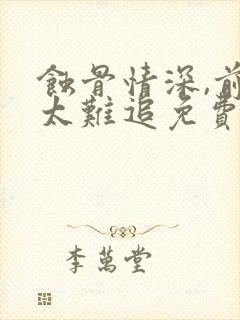 蝕骨情深,前
太難追免費
李萬堂